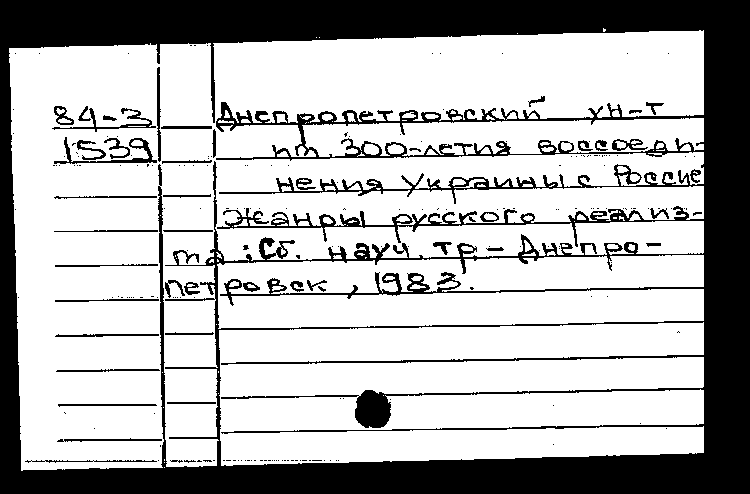 84-3 Днепропетровский ун-т
1539 им. 300-летия воссоеди-
нения Украины с Россие
Жанры русского реализ-
ма : Сб. науч. тр. – Днепро-
петровск, 1983.